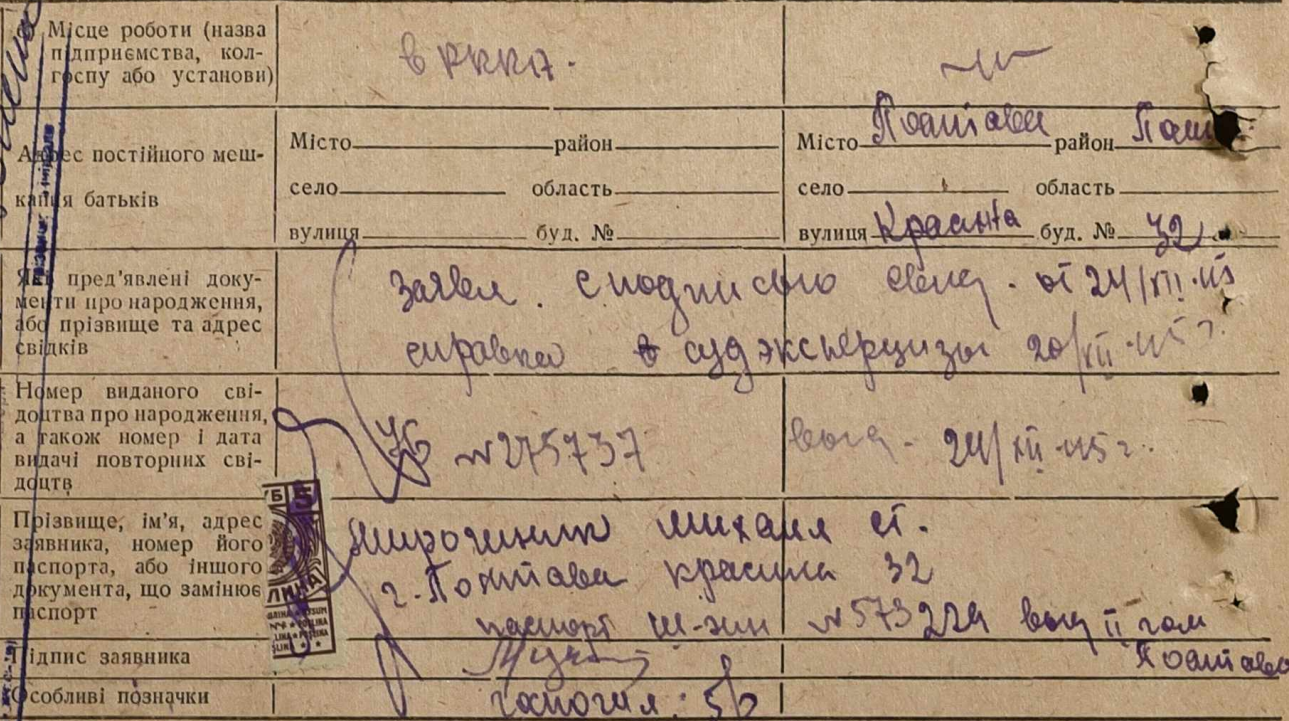 Місце роботи (назва
підприємства, кол-
госпу або установи)
в РККА.
Адрес постійного меш-
кання батьків
Місто район
село область
вулиця буд. №
Місто Полтава район Полт.
село область
вулиця Красина буд. № 32
Які пред'явлені доку-
менти про народження,
або прізвище та адрес
свідків
заявл. с подписью свид. от 24/XII-45
справка судэкспертизы 20/XII-45 г.
Номер виданого сві-
доцтва про народження,
а також номер і дата
видачі повторних сві-
доцтв
№ 275737 выд. 24/XII-45 г.
Прізвище, ім'я, адрес
заявника, номер його
паспорта, або іншого
документа, що замінює
паспорт
Мирошник Михаил
г. Полтава Красина 32
паспорт № 573229 выд II гом
Полтава
Підпис заявника
Особливі позначки
5